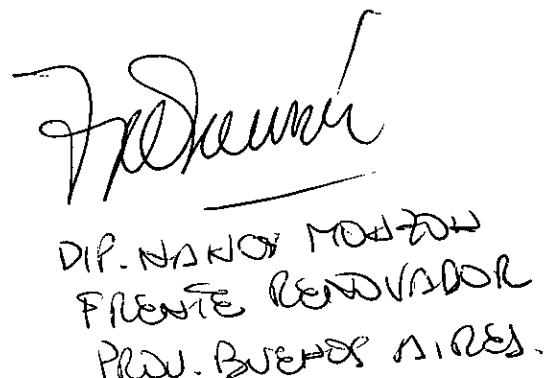 DIP. NANCY MONZON
FRENTE RENOVADOR
PROV. BUENOS AIRES.